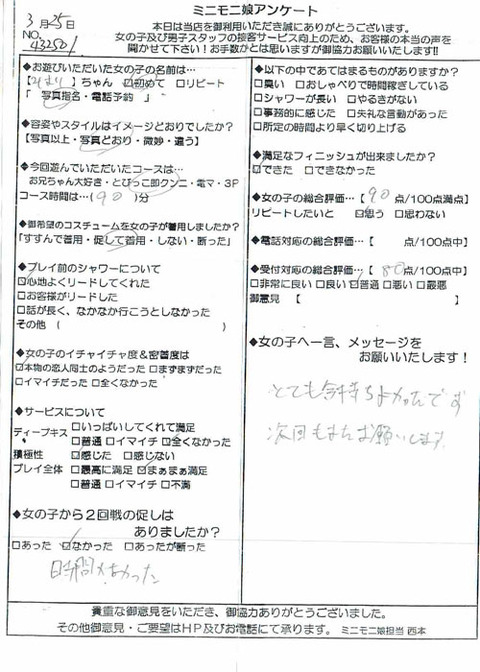 ミニモニ娘アンケート
3月25日
NO. 432501
本日は当店を御利用いただき誠にありがとうございます。
女の子及び男子スタッフの接客サービス向上のため、お客様の本当の声を
聞かせて下さい!お手数かとは思いますが御協力お願いいたします!!
◆お遊びいただいた女の子の名前は…
】ちゃん ☑初めて □リピート
「 写真指名・電話予約 」
◆容姿やスタイルはイメージどおりでしたか?
【写真以上・写真どおり・微妙・違う】
◆今回遊んでいただいたコースは…
お兄ちゃん大好き・とびっこ即クンニ・電マ・3P
コース時間は…(90)分
◆御希望のコスチュームを女の子が着用しましたか?
「すすんで着用・促して着用・しない・断った」
◆プレイ前のシャワーについて
☑心地よくリードしてくれた
□お客様がリードした
□話が長く、なかなか行こうとしなかった
その他 ( )
◆女の子のイチャイチャ度&密着度は
☑本物の恋人同士のようだった □まずまずだった
□イマイチだった □全くなかった
◆サービスについて
ディープキス □いっぱいしてくれて満足
□普通 □イマイチ ☑全くなかった
積極性 ☑感じた □感じない
プレイ全体 □最高に満足 ☑まぁまぁ満足
□普通 □イマイチ □不満
◆女の子から2回戦の促しは
ありましたか?
□あった ☑なかった □あったが断った
時間がなかった
◆以下の中であてはまるものがありますか?
□臭い □おしゃべりで時間稼ぎしている
□シャワーが長い □やるきがない
□事務的に感じた □失礼な言動があった
□所定の時間より早く切り上げる
◆満足なフィニッシュが出来ましたか?
☑できた □できなかった
◆女の子の総合評価…【 90 点/100点満点】
リピートしたいと ☑思う □思わない
◆電話対応の総合評価…【 点/100点中】
◆受付対応の総合評価…【 80点/100点中】
□非常に良い □良い ☑普通 □悪い □最悪
御意見 【 】
◆女の子へ一言、メッセージを
お願いいたします!
とても気持ちよかったです
次回もまたお願いします
貴重な御意見をいただき、御協力ありがとうございました。
その他御意見・ご要望はHP及びお電話にて承ります。 ミニモニ娘担当 西本